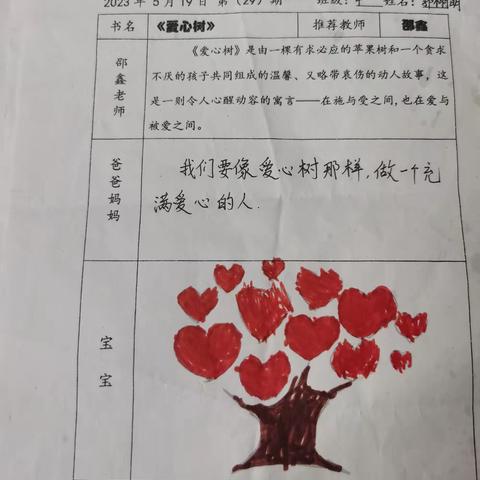 2023 年 5 月 19 日 第（29）期 班级： 姓名：
书名 《爱心树》 推荐教师 邵鑫
邵鑫老师
《爱心树》是由一棵有求必应的苹果树和一个贪求
不厌的孩子共同组成的温馨、又略带哀伤的动人故事，这
是一则令人心醒动容的寓言——在施与受之间，也在爱与
被爱之间。
爸爸妈妈
我们要像爱心树那样，做一个充
满爱心的人.
宝宝